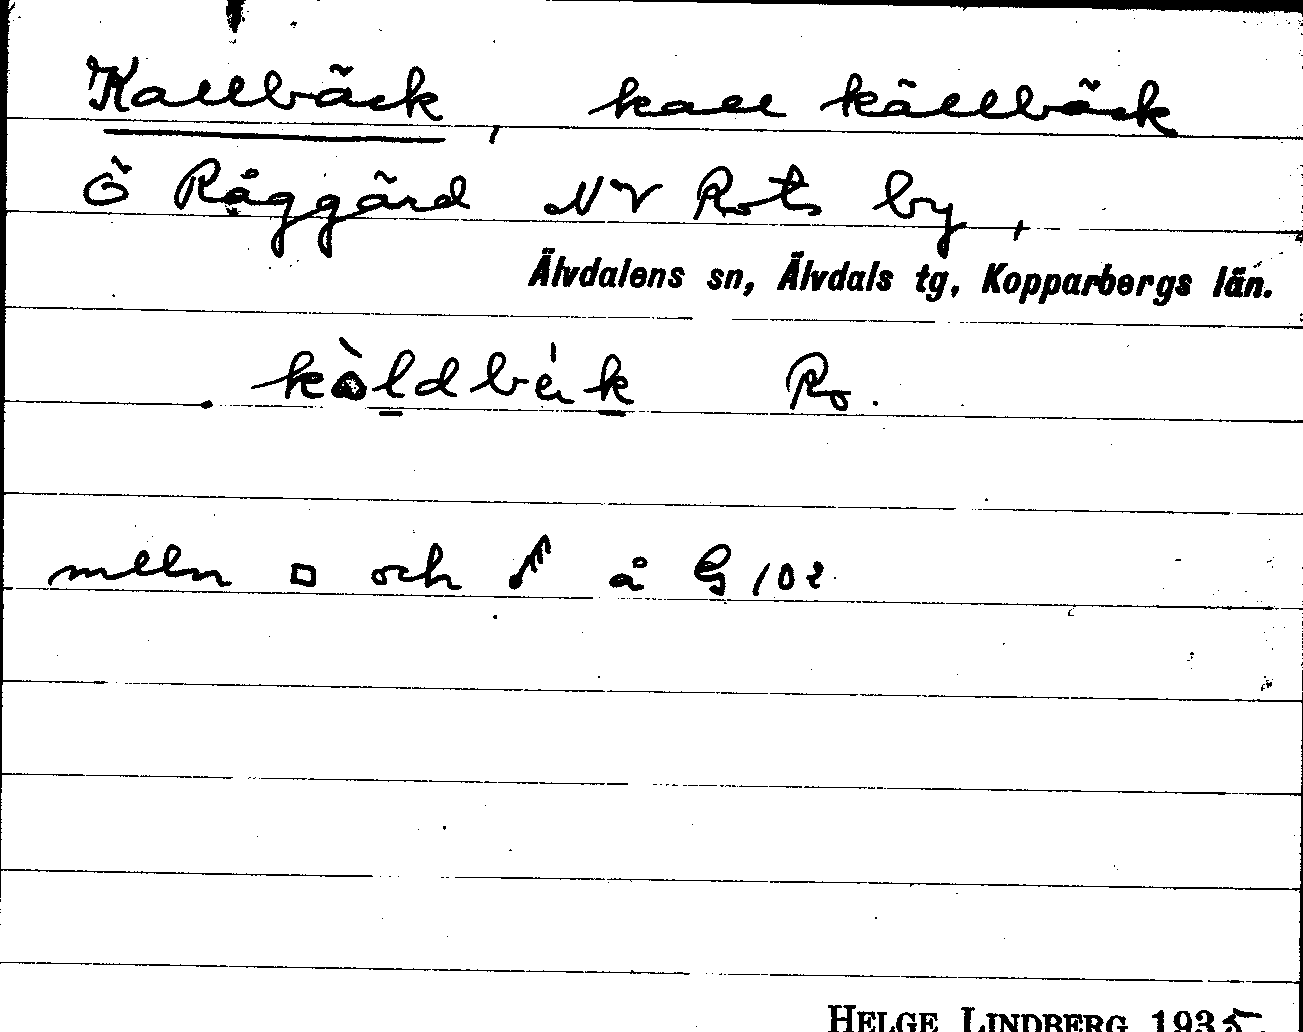 Kallbäck, kall källbäck
Ö Råggärd NV Rots by,
Älvdalens sn, Älvdals tg, Kopparbergs län.
kòldbék Ro.
melln □ och å G 102
HELGE LINDBERG 1935